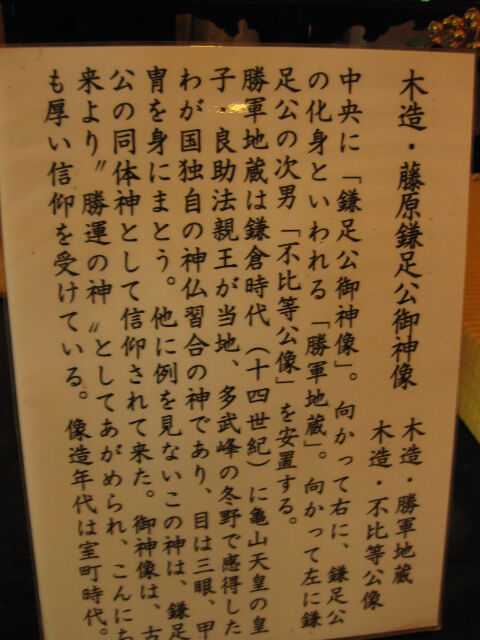 木造・藤原鎌足公御神像
木造・勝軍地蔵
木造・不比等公像
中央に「鎌足公御神像」。向かって右に、鎌足公
の化身といわれる「勝軍地蔵」。向かって左に鎌
足公の次男「不比等公像」を安置する。
勝軍地蔵は鎌倉時代（十四世紀）に亀山天皇の皇
子・良助法親王が当地、多武峰の冬野で感得した
わが国独自の神仏習合の神であり、目は三眼、甲
冑を身にまとう。他に例を見ないこの神は、鎌足
公の同体神として信仰されて来た。御神像は、古
来より〝勝運の神〟としてあがめられ、こんにち
も厚い信仰を受けている。像造年代は室町時代。